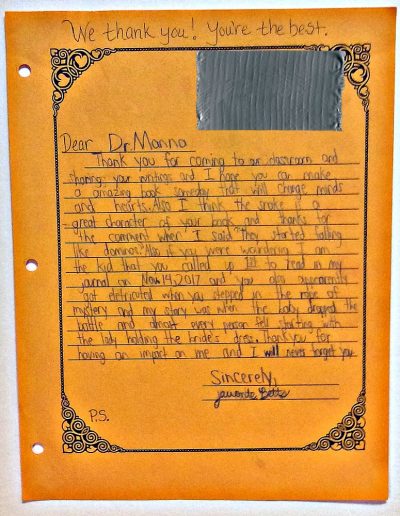 We thank you! You're the best.
Dear Dr. Manna
Thank you for coming to our classroom and
sharing your writings and I hope you can make
a amazing book someday that will change minds
and heurts. Also I think the snake is a
great character of your book and thanks for
the comment when I said "They started falling
like dominos." Also if you were wondering I am
the kid that you called up 1st to read in my
journal on Nov. 14, 2017 and you also apparently
got when you stepped in the rope of
mystery and my story was when the baby dropped the
bottle and almost every person fell starting with
the lady holding the bride's dress. thank you for
having an impact on me and I will never forget you
Sincerely,
Betts
P.S.